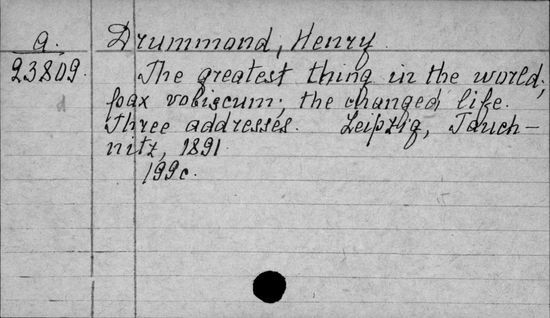 a.
Drummond, Henry
23809.
The greatest thing in the world;
pax vobiscum; the changed life.
Three addresses. Leipzig, Tauch-
nitz, 1891.
199c.